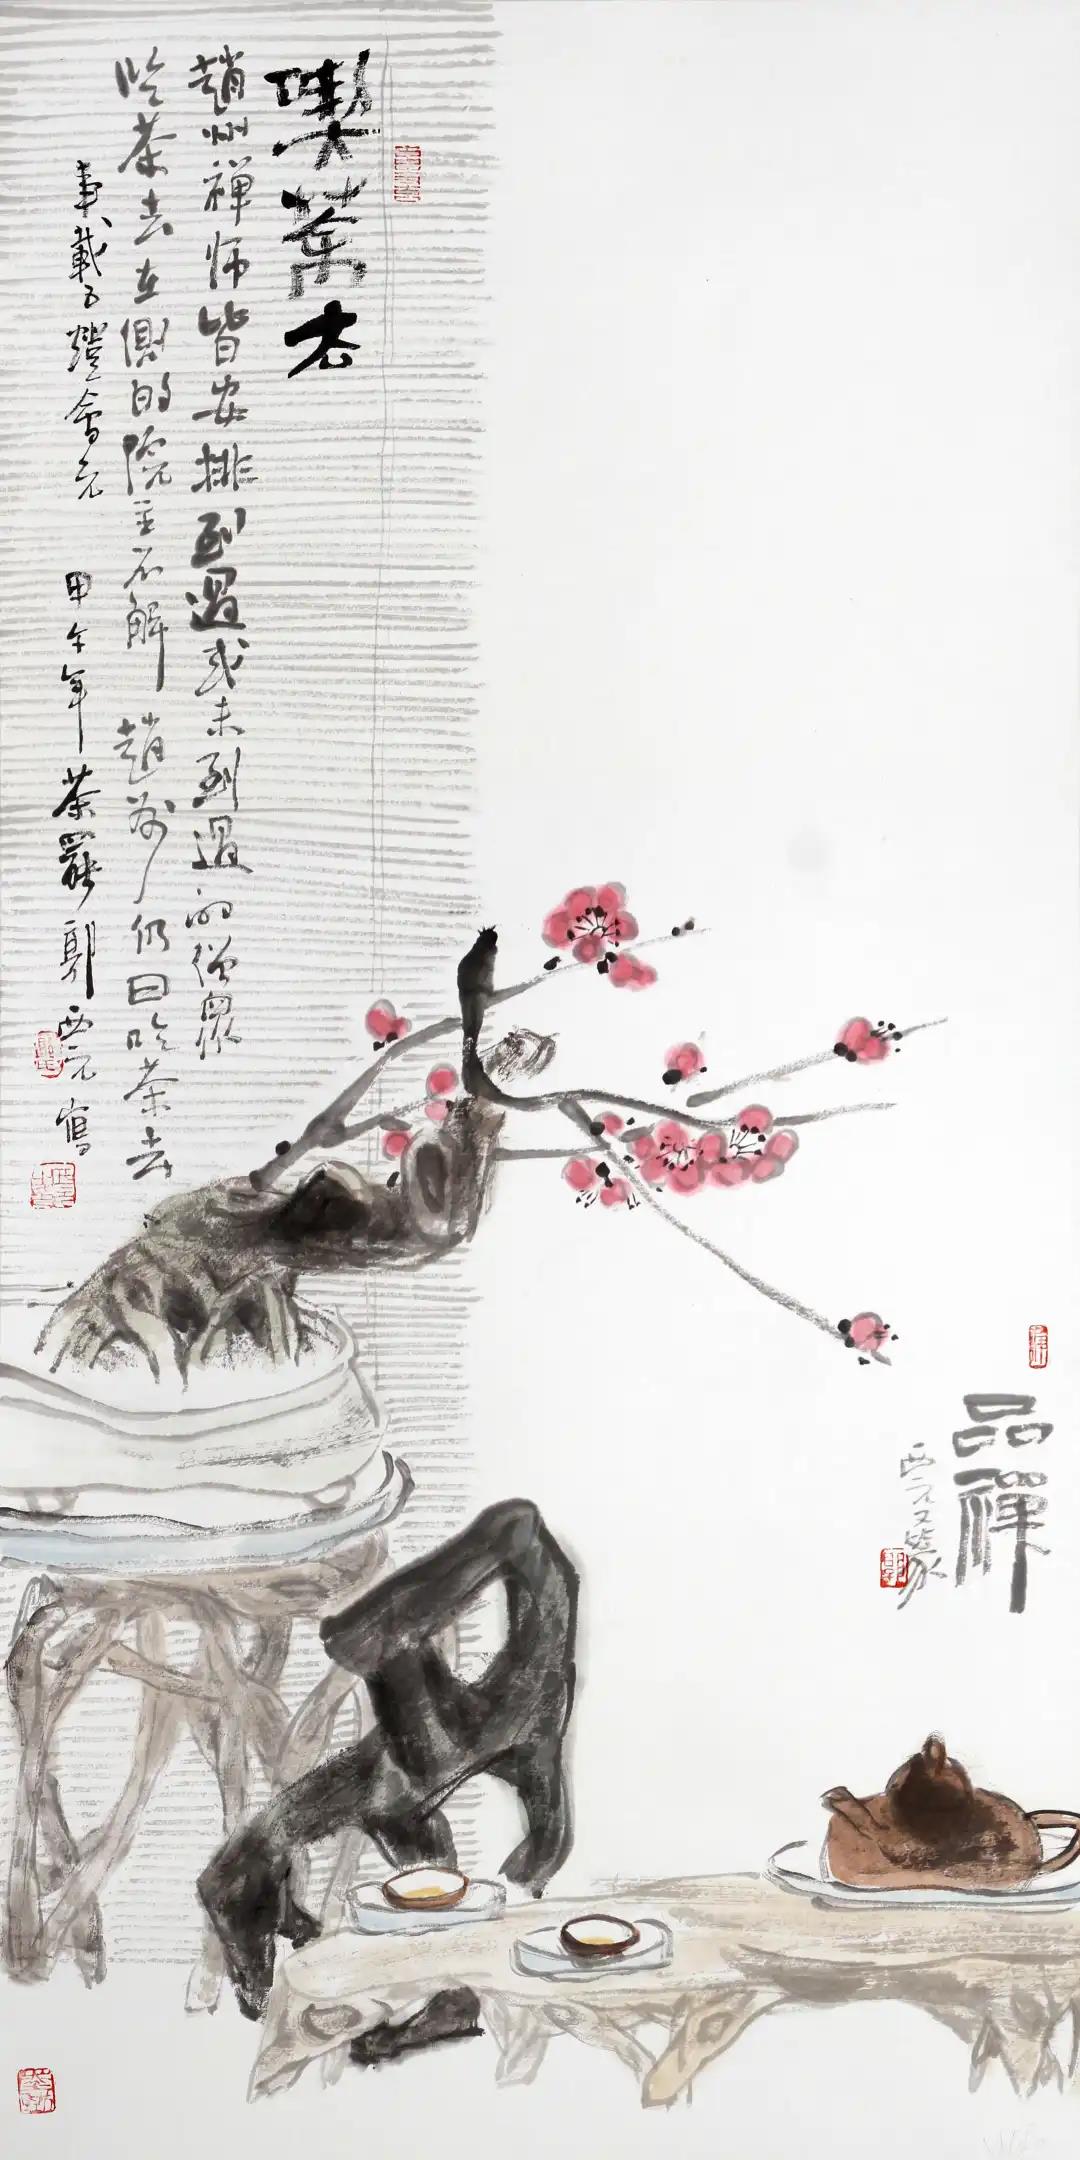 喫茶去
趙州禅师皆安排到過或未到過的僧衆
吃茶去在側的院主不解 趙州仍曰吃茶去
事載五燈會元 甲午年茶罷郭西元寫
品禪
西元又篆